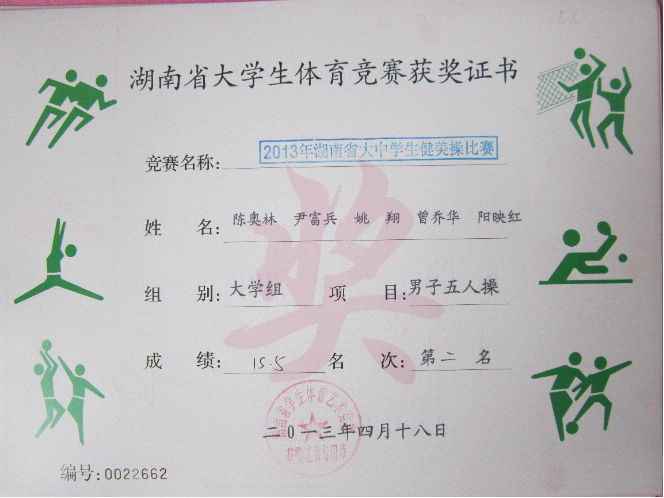 湖南省大学生体育竞赛获奖证书
竞赛名称: 2013年湖南省大中学生健美操比赛
姓 名: 陈奥林 尹富兵 姚 翔 曾乔华 阳映红
组 别: 大学组 项 目: 男子五人操
成 绩: 15.5 名 次: 第二 名
奖
二0一三年四月十八日
编号:0022662